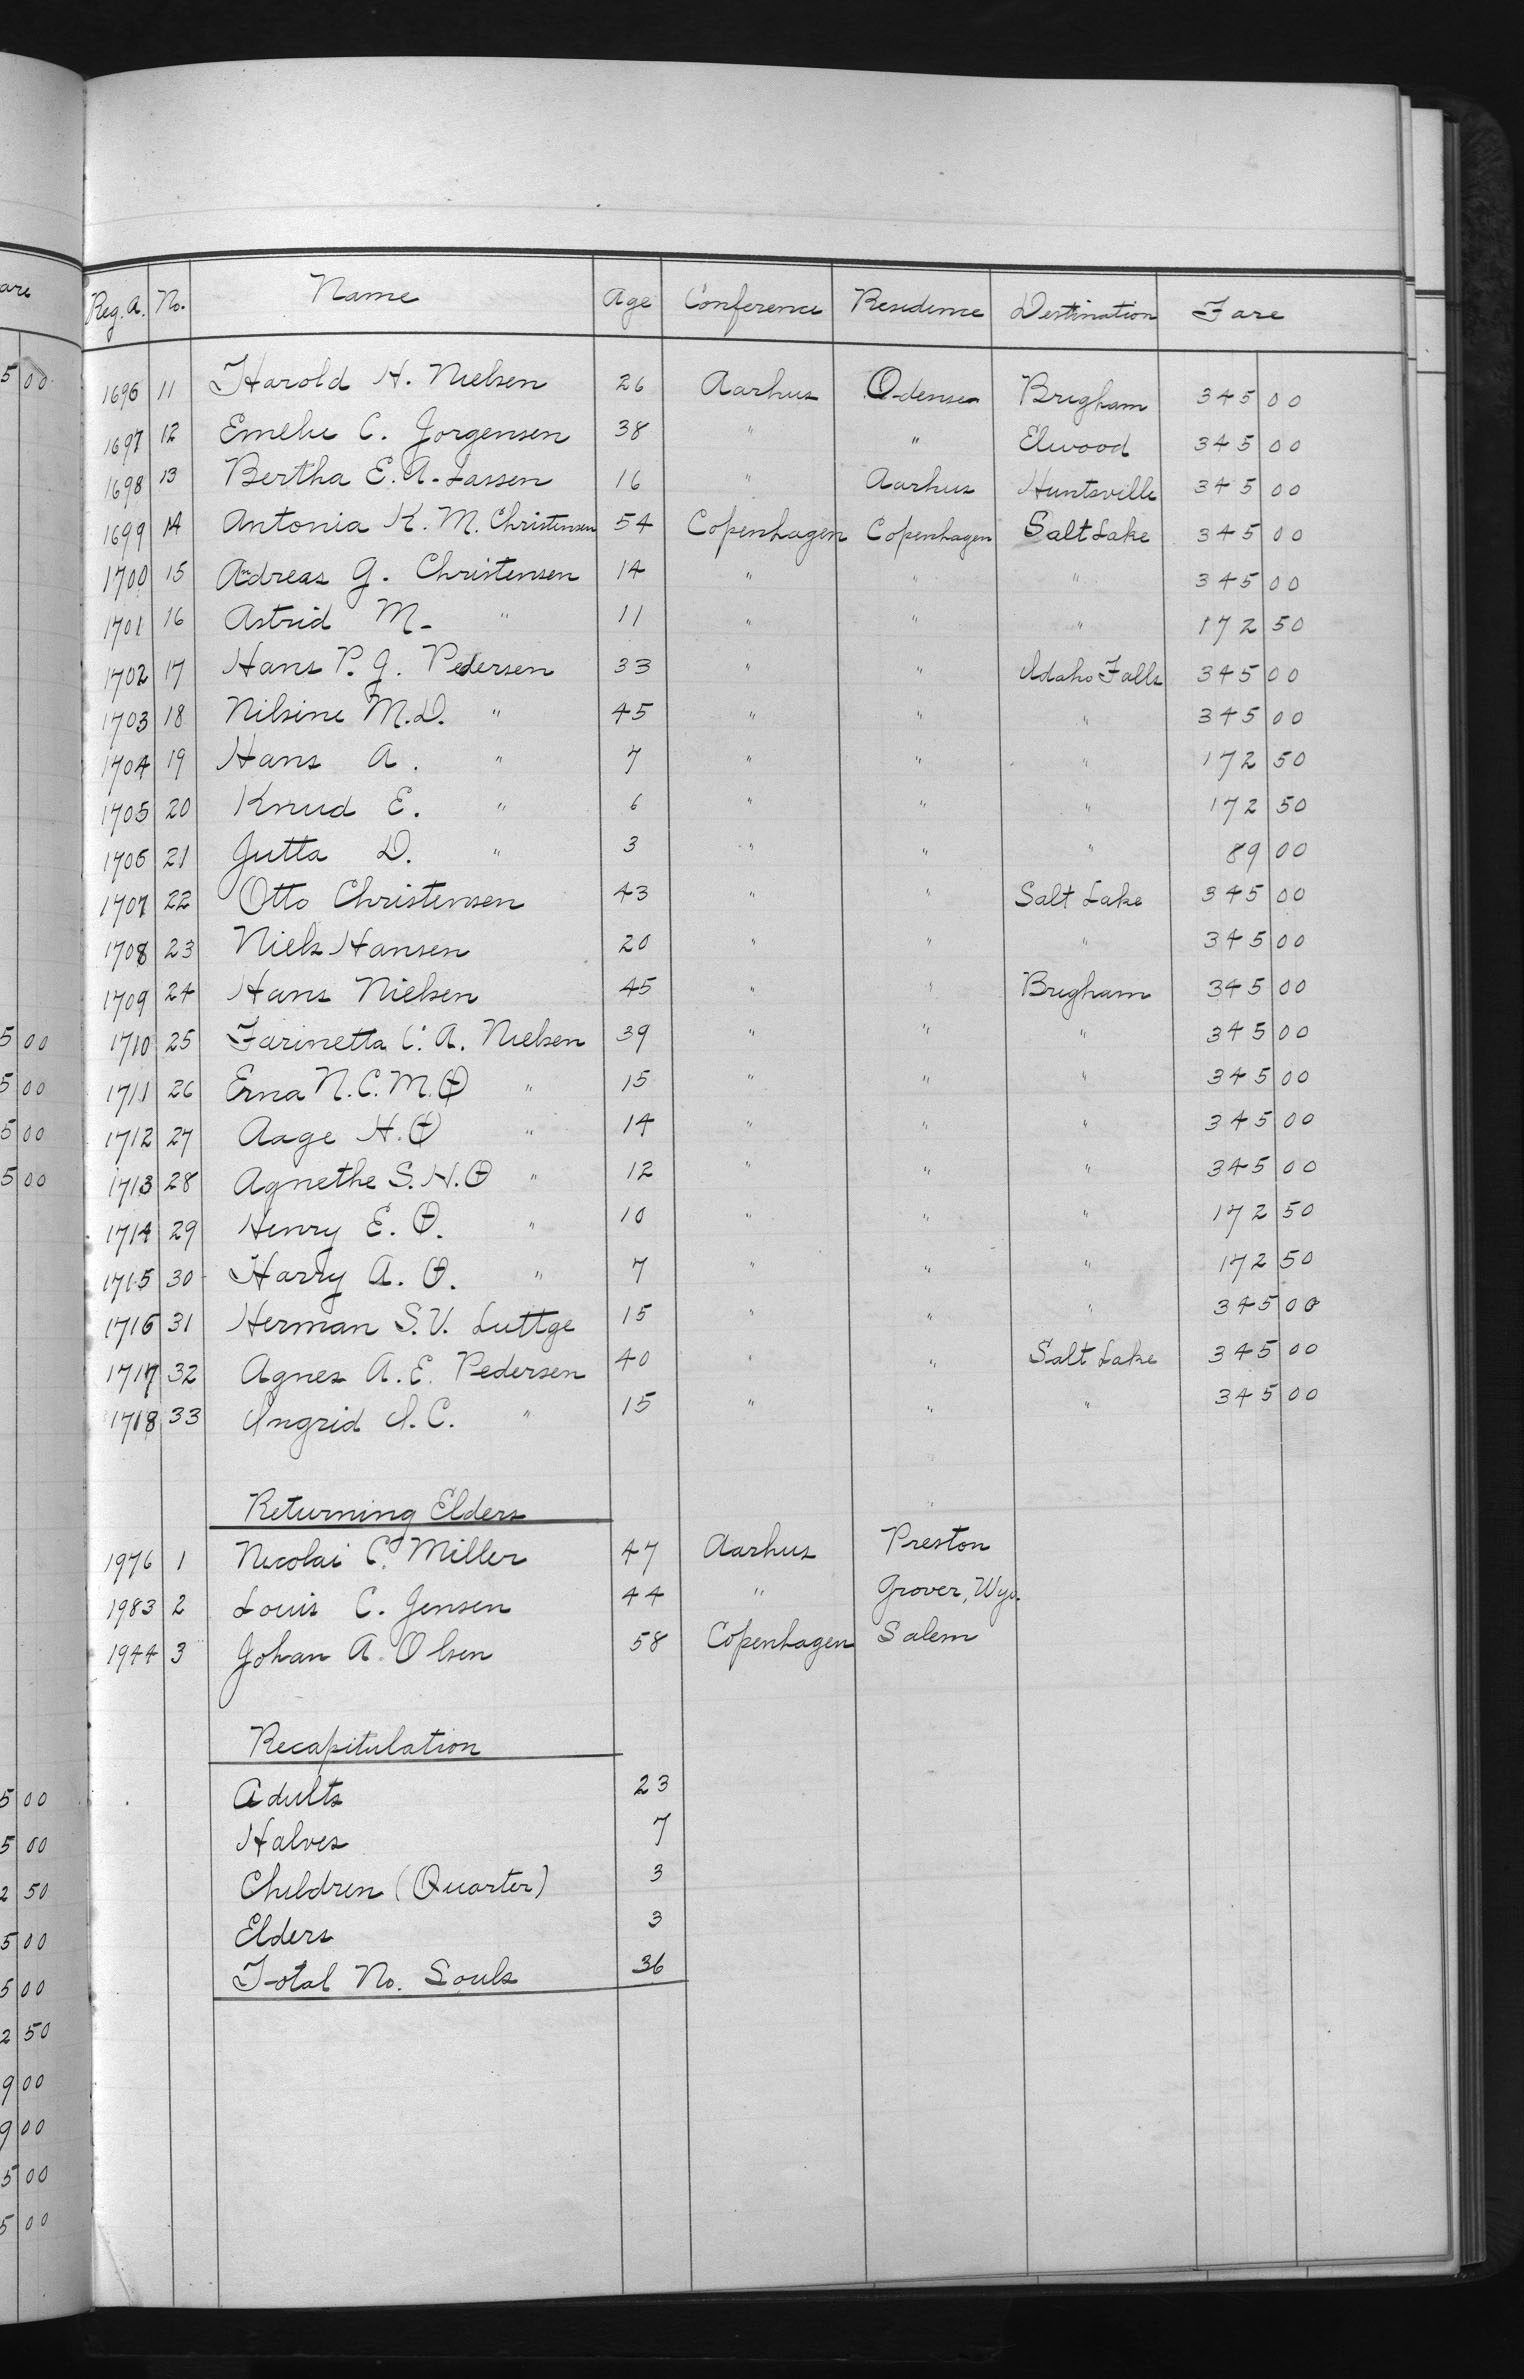 Reg. A. No. Name Age Conference Residence Destination Fare
1696 11 Harold H. Nielsen 26 Aarhus Odense Brigham 345 00
1697 12 Emelie C. Jorgensen 38 " " Elwood 345 00
1698 13 Bertha E. A. Lassen 16 " Aarhus Huntsville 345 00
1699 14 Antonia K. M. Christensen 54 Copenhagen Copenhagen Salt Lake 345 00
1700 15 Andreas J. Christensen 14 " " " 345 00
1701 16 Astrid M. " 11 " " " 172 50
1702 17 Hans P. J. Pedersen 33 " " Idaho Falls 345 00
1703 18 Nilsine M. D. " 45 " " " 345 00
1704 19 Hans A. " 7 " " " 172 50
1705 20 Knud E. " 6 " " " 172 50
1706 21 Jutta D. " 3 " " " 89 00
1707 22 Otto Christensen 43 " " Salt Lake 345 00
1708 23 Niels Hansen 20 " " " 345 00
1709 24 Hans Nielsen 45 " " Brigham 345 00
1710 25 Farinetta C. A. Nielsen 39 " " " 345 00
1711 26 Erna N. C. M. Θ " 15 " " " 345 00
1712 27 Aage H. Θ " 14 " " " 345 00
1713 28 Agnethe S. H. Θ " 12 " " " 345 00
1714 29 Henry E. Θ. " 10 " " " 172 50
1715 30 Harry A. Θ. " 7 " " " 172 50
1716 31 Herman S. V. Luttge 15 " " " 345 00
1717 32 Agnes A. E. Pedersen 40 " " Salt Lake 345 00
1718 33 Ingrid I. C. " 15 " " " 345 00
Returning Elders
1976 1 Nicolai C. Miller 47 Aarhus Preston
1983 2 Louis C. Jensen 44 " Grover, Wyo.
1944 3 Johan A. Olsen 58 Copenhagen Salem
Recapitulation
Adults 23
Halves 7
Children (Quarter) 3
Elders 3
Total No. Souls 36